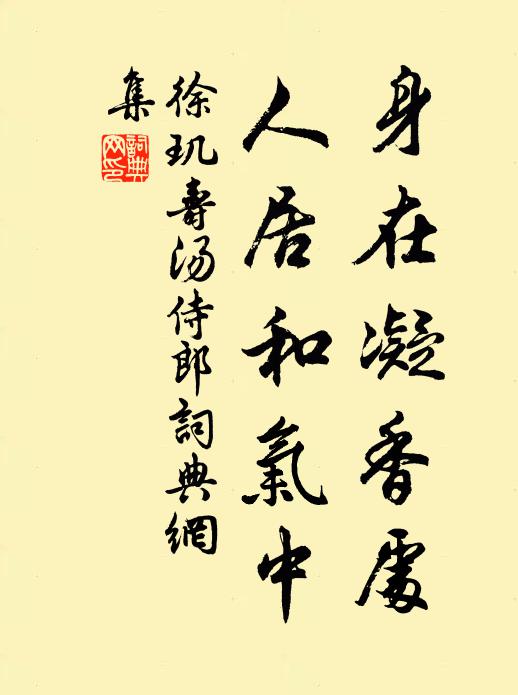 身在凝香處
人居和氣中
徐玑壽汤侍郎詞典網
集
詞典網印